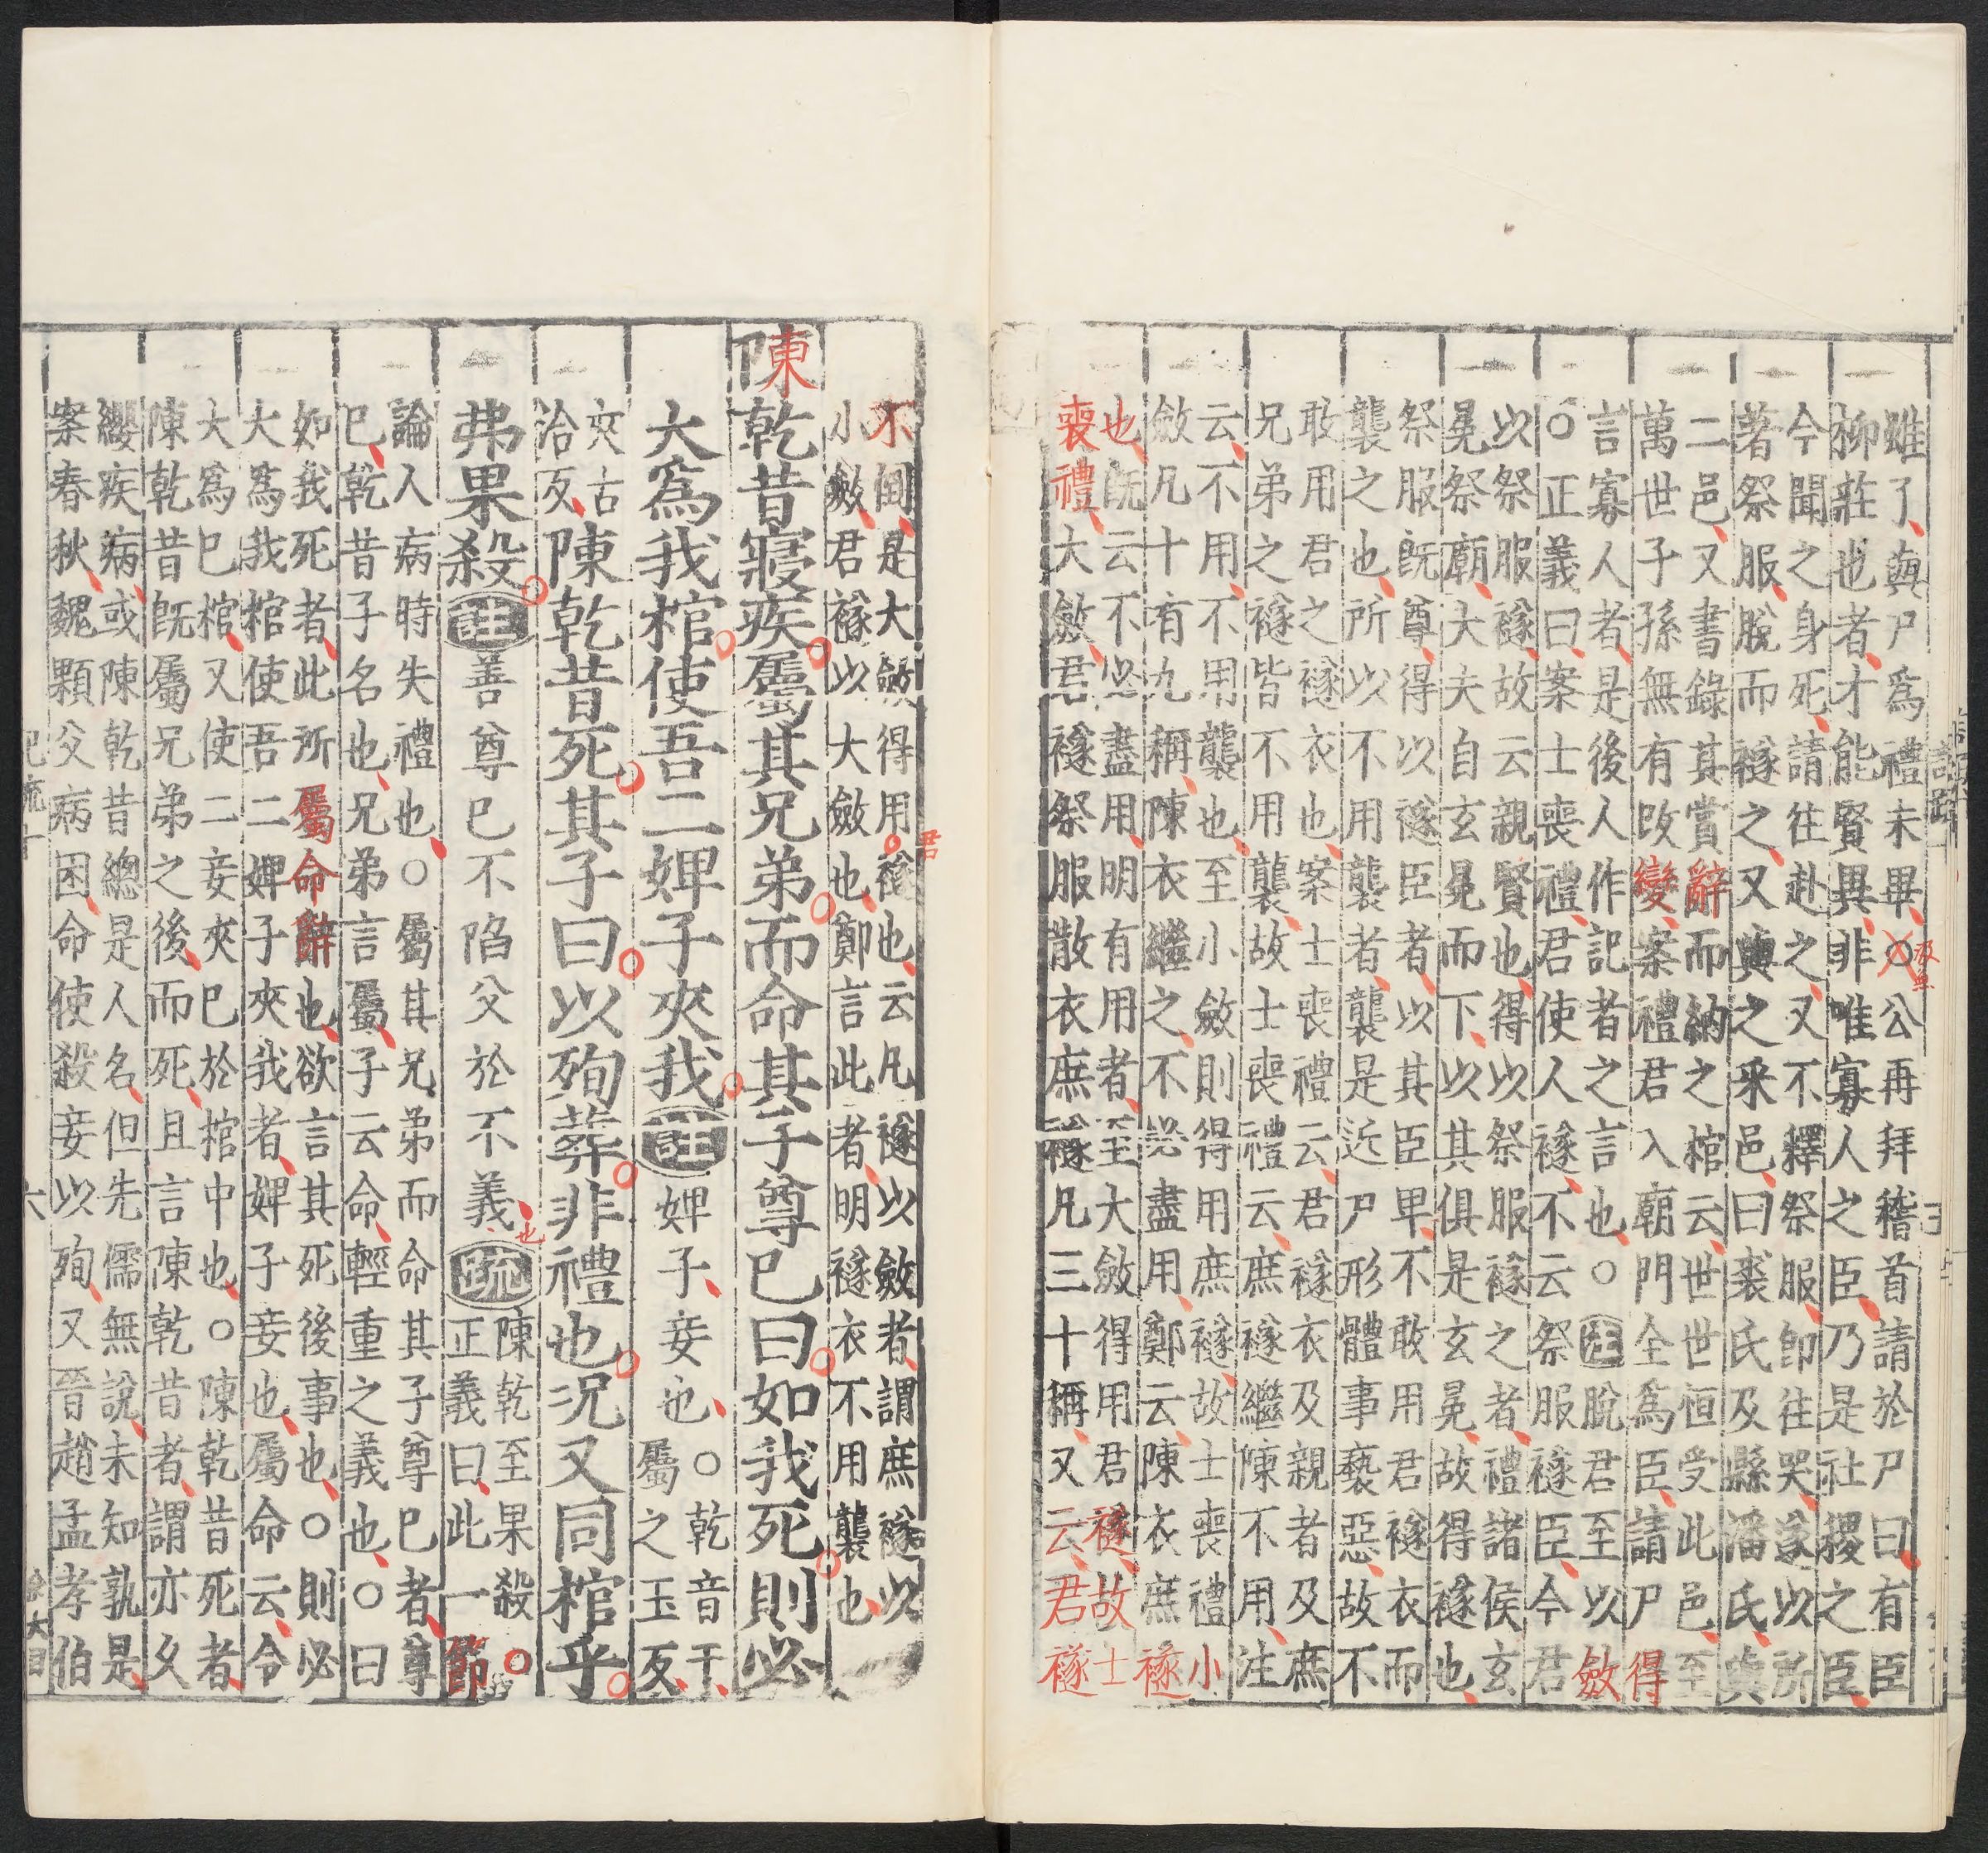 雖了與尸爲禮未畢○公再拜稽首請於尸曰有臣
柳莊也者才能賢異非唯寡人之臣乃是社稷之臣
今聞之身死請往赴之又不釋祭服卽往哭遂以所
著祭服脫而襚之又與之采邑曰裘氏及縣潘氏與
二邑又書錄其賞辭而納之棺云世世恒受此邑至
萬世子孫無有改變案禮君入廟門全爲臣請尸得
言寡人者是後人作記者之言也○註脫君至以斂
○正義曰案士喪禮君使人襚不云祭服襚臣今君
以祭服襚故云親賢也得以祭服襚之者禮諸侯玄
冕祭廟大夫自玄冕而下以其俱是玄冕故得襚也
祭服旣尊得以襚臣者以其臣卑不敢用君襚衣而
襲之也所以不用襲者襲是近尸形體事褻惡故不
敢用君之襚衣也案士喪禮云君襚衣及親者及庶
兄弟之襚皆不用襲故士喪禮云庶襚繼陳不用注
云不用不用襲也至小斂則得用庶襚故士喪禮小
斂凡十有九稱陳衣繼之不必盡用鄭云陳衣庶襚
也旣云不必盡用明有用者至大斂得用君襚故士
喪禮大斂君襚祭服散衣庶襚凡三十稱又云君襚
不倒是大斂得用襚也云凡襚以斂者謂庶襚以
君
小斂君襚以大斂也鄭言此者明襚衣不用襲也
陳乾昔寢疾屬其兄弟而命其子尊已曰如我死則必
大爲我棺使吾二婢子夾我註婢子妾也○乾音干
屬之玉反
夾古
洽反
陳乾昔死其子曰以殉葬非禮也況又同棺乎
弗果殺註善尊已不陷父於不義也疏陳乾至果殺○
正義曰此一節
論人病時失禮也○屬其兄弟而命其子尊已者尊
已乾昔子名也兄弟言屬子云命輕重之義也○曰
如我死者此所屬命辭也欲言其死後事也○則必
大爲我棺使吾二婢子夾我者婢子妾也屬命云令
大爲已棺又使二妾夾已於棺中也○陳乾昔死者
陳乾昔旣屬兄弟之後而死且言陳乾昔者謂亦久
纓疾病或陳乾昔總是人名但先儒無說未知孰是
案春秋魏顆父病困命使殺妾以殉又晉趙孟孝伯